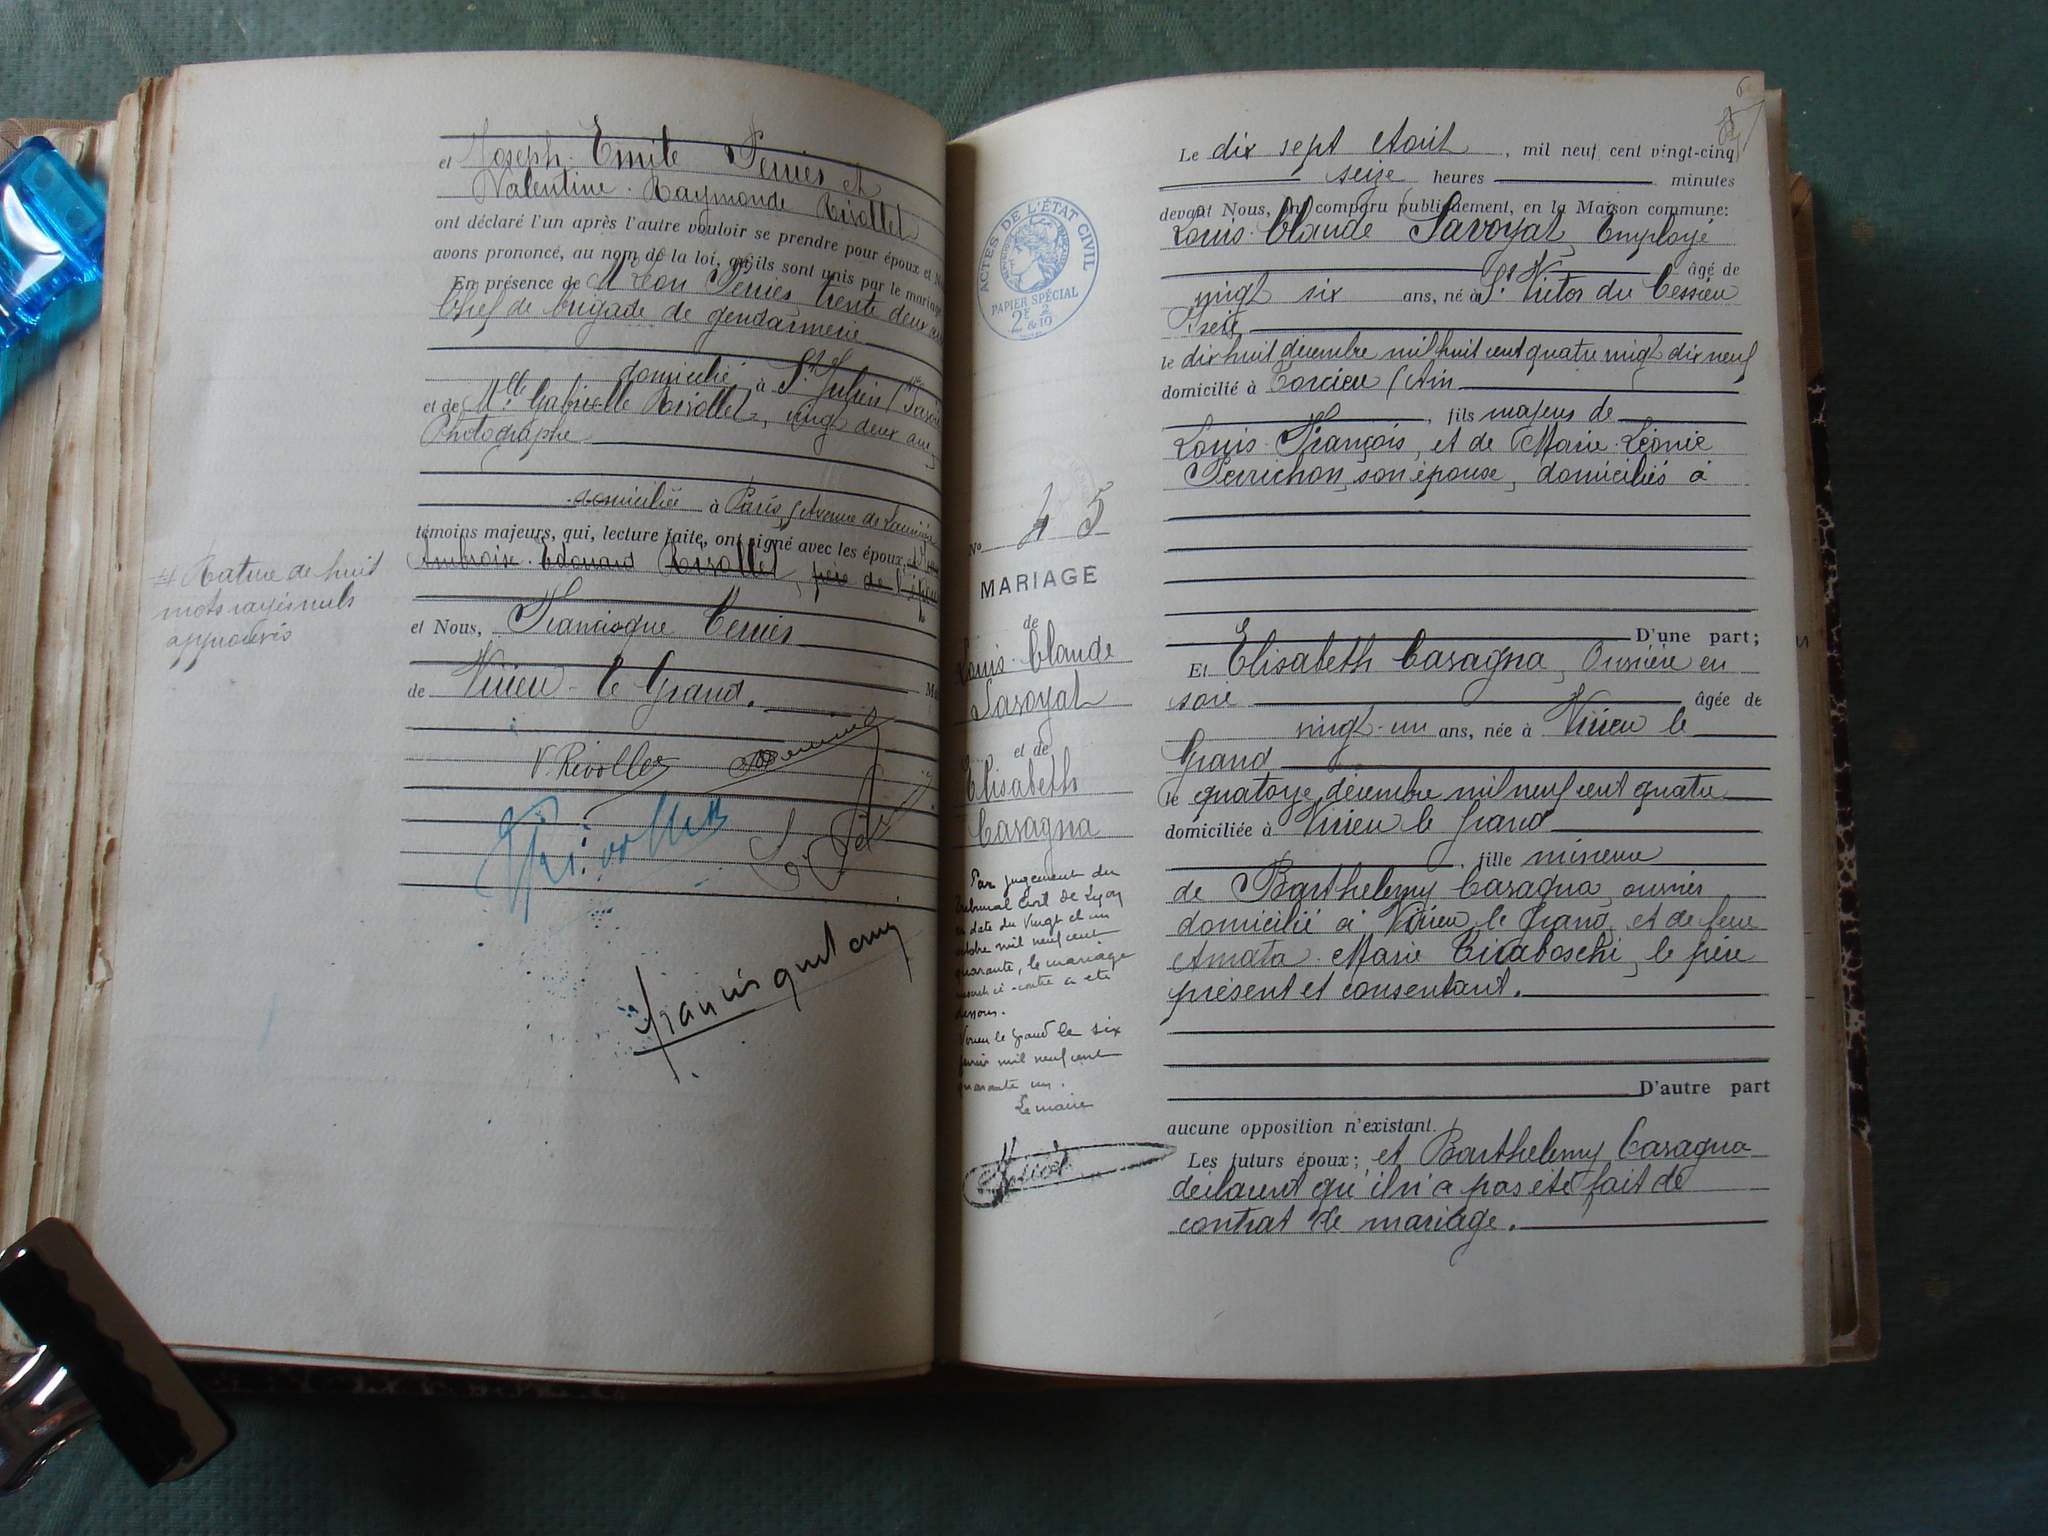 et Joseph Emile Perriès et
Valentine Raymonde Rivollet
ont déclaré l'un après l'autre vouloir se prendre pour époux et
avons prononcé, au nom de la loi, qu'ils sont unis par le mariage
En présence de Mr Léon Perriès trente deux ans
Chef de brigade de gendarmerie
domicilié à St Julien
et de Mlle Gabrielle Rivollet, vingt deux ans,
Photographe
domiciliée à Paris, Avenue de
témoins majeurs, qui, lecture faite, ont signé avec les époux,
Ambroise Edouard Rivollet, père de l'épouse
# Rature de huit
mots rayés nuls
approuvés
et Nous, Francisque
de Virieu-le Grand.
V. Rivollet
Rivollet
6
Le dix sept Août, mil neuf cent vingt-cinq
seize heures minutes
devant Nous, ont comparu publiquement, en la Maison commune:
Louis Claude Savoyat, Employé
âgé de
vingt six ans, né à St Victor du Cessieu
Isère
le dix huit décembre mil huit cent quatre vingt dix neuf
domicilié à Torcieu (Ain
, fils majeur de
Louis François, et de Marie Léonie
Perrichon, son épouse, domiciliés à
D'une part;
Et Elisabeth Casagna, Ouvrière en
soie âgée de
vingt-un ans, née à Virieu le
Grand
le quatorze décembre mil neuf cent quatre
domiciliée à Virieu le Grand
, fille mineure
de Barthelemy Casagna, ouvrier
domicilié à Virieu le Grand, et de feue
Amata Marie Tiraboschi, le père
présent et consentant.
D'autre part
aucune opposition n'existant.
Les futurs époux; et Barthelemy Casagna
déclarent qu'il n'a pas été fait de
contrat de mariage.
ACTES DE L'ÉTAT CIVIL
PAPIER SPÉCIAL
No 45
MARIAGE
de
Louis Claude
Savoyat
et de
Elisabeth
Casagna
Par jugement du
Tribunal Civil de Lyon
en date du Vingt et un
octobre mil neuf cent
quarante, le mariage
inscrit ci-contre a été
dissous.
Virieu le Grand le six
mil neuf cent
quarante un.
Le maire